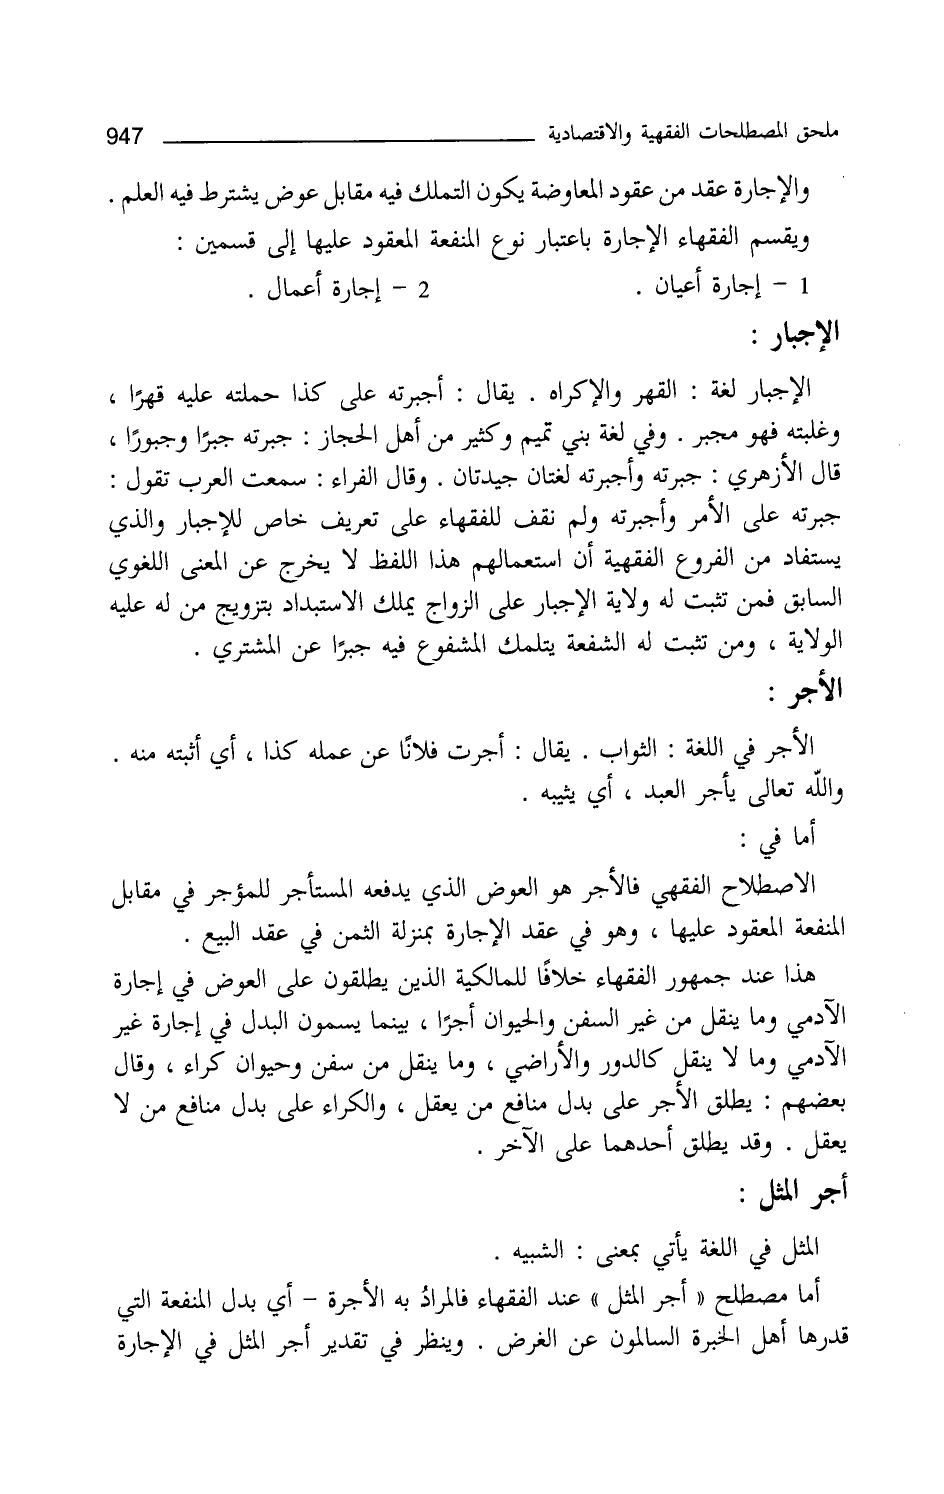 ملحق المصطلحات الفقهية والاقتصادية 947
والإجارة عقد من عقود المعاوضة يكون التملك فيه مقابل عوض يشترط فيه العلم .
ويقسم الفقهاء الإجارة باعتبار نوع المنفعة المعقود عليها إلى قسمين :
1 – إجارة أعيان . 2 – إجارة أعمال .
الإجبار :
الإجبار لغة : القهر والإكراه . يقال : أجبرته على كذا حملته عليه قهرًا ،
وغلبته فهو مجبر . وفي لغة بني تميم وكثير من أهل الحجاز : جبرته جبرًا وجبورًا ،
قال الأزهري : جبرته وأجبرته لغتان جيدتان . وقال الفراء : سمعت العرب تقول :
جبرته على الأمر وأجبرته ولم نقف للفقهاء على تعريف خاص للإجبار والذي
يستفاد من الفروع الفقهية أن استعمالهم هذا اللفظ لا يخرج عن المعنى اللغوي
السابق فمن تثبت له ولاية الإجبار على الزواج يملك الاستبداد بتزويج من له عليه
الولاية ، ومن تثبت له الشفعة يتلمك المشفوع فيه جبرًا عن المشتري .
الأجر :
الأجر في اللغة : الثواب . يقال : أجرت فلانًا عن عمله كذا ، أي أثبته منه .
واللّه تعالى يأجر العبد ، أي يثيبه .
أما في :
الاصطلاح الفقهي فالأجر هو العوض الذي يدفعه المستأجر للمؤجر في مقابل
المنفعة المعقود عليها ، وهو في عقد الإجارة بمنزلة الثمن في عقد البيع .
هذا عند جمهور الفقهاء خلافًا للمالكية الذين يطلقون على العوض في إجارة
الآدمي وما ينقل من غير السفن والحيوان أجرًا ، بينما يسمون البدل في إجارة غير
الآدمي وما لا ينقل كالدور والأراضي ، وما ينقل من سفن وحيوان كراء ، وقال
بعضهم : يطلق الأجر على بدل منافع من يعقل ، والكراء على بدل منافع من لا
يعقل . وقد يطلق أحدهما على الآخر .
أجر المثل :
المثل في اللغة يأتي بمعنى : الشبيه .
أما مصطلح « أجر المثل » عند الفقهاء فالمرادُ به الأجرة – أي بدل المنفعة التي
قدرها أهل الخبرة السالمون عن الغرض . وينظر في تقدير أجر المثل في الإجارة